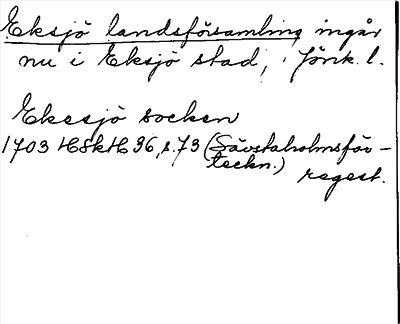 Eksjö landsförsamling ingår
nu i Eksjö stad, i Jönk. l.
Ekesjö socken
1703 HSkH 36, s. 73 (Sävstaholmsför-
teckn.)
regest.